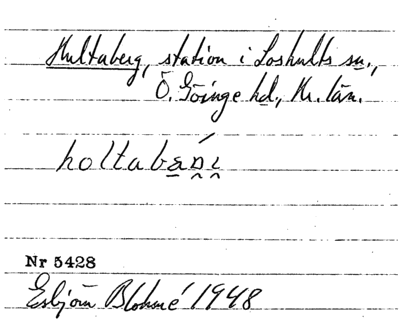 Hultaberg, station i Loshults sn.,
Ö. Göinge hd., Kr. län.
Nr 5428
Esbjörn Blohmé 1948